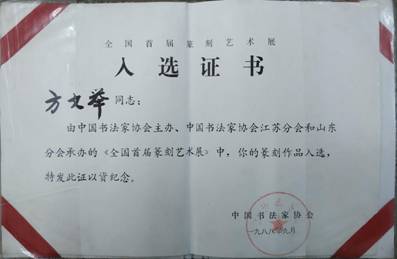 全国首届篆刻艺术展
入选证书
方文举同志：
由中国书法家协会主办、中国书法家协会江苏分会和山东
分会承办的《全国首届篆刻艺术展》中，你的篆刻作品入选，
特发此证以资纪念。
中国书法家协会
一九八八年九月